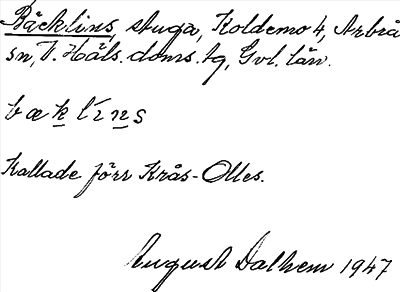 Bäcklins, stuga, Koldemo 4, Arbrå
sn, V. Häls. doms. tg, Gvl. län.
bækl̀ıns
Kallade förr Krås-Olles.
August Dalhem 1947